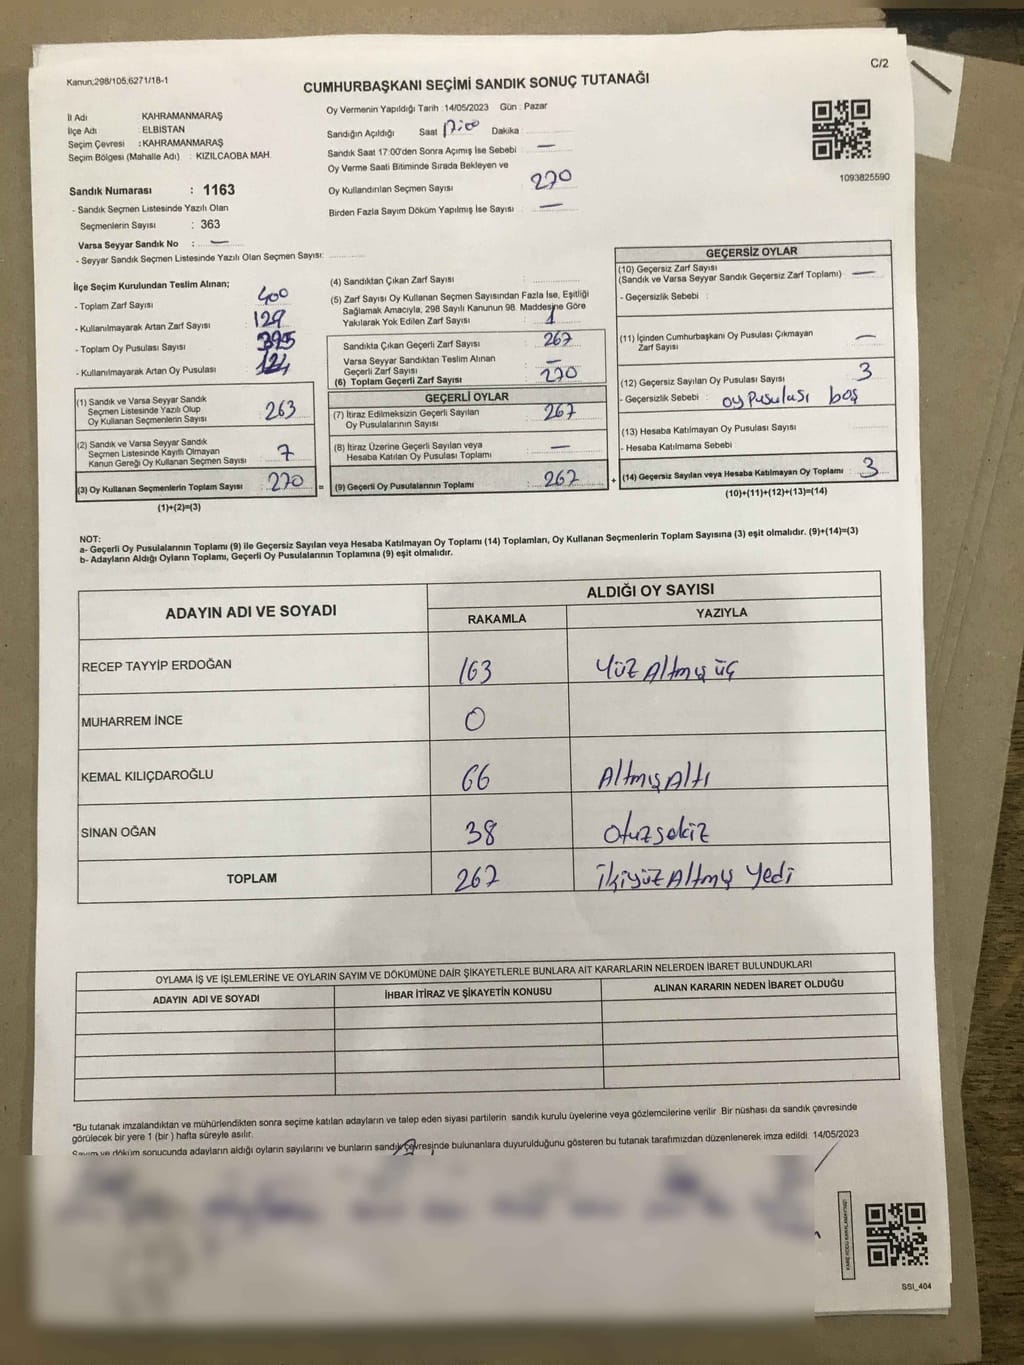 Kanun:298/105,6271/18-1
C/2
CUMHURBAŞKANI SEÇİMİ SANDIK SONUÇ TUTANAĞI
İl Adı KAHRAMANMARAŞ
İlçe Adı ELBİSTAN
Seçim Çevresi : KAHRAMANMARAŞ
Seçim Bölgesi (Mahalle Adı) : KIZILCAOBA MAH.
Sandık Numarası : 1163
- Sandık Seçmen Listesinde Yazılı Olan
Seçmenlerin Sayısı : 363
Varsa Seyyar Sandık No : —
- Seyyar Sandık Seçmen Listesinde Yazılı Olan Seçmen Sayısı:
Oy Vermenin Yapıldığı Tarih : 14/05/2023 Gün : Pazar
Sandığın Açıldığı Saat 17:00 Dakika :
Sandık Saat 17:00'den Sonra Açımış İse Sebebi : —
Oy Verme Saati Bitiminde Sırada Bekleyen ve
Oy Kullandırılan Seçmen Sayısı : 270
Birden Fazla Sayım Döküm Yapılmış İse Sayısı : —
1093825590
İlçe Seçim Kurulundan Teslim Alınan;
- Toplam Zarf Sayısı : 400
- Kullanılmayarak Artan Zarf Sayısı : 129
- Toplam Oy Pusulası Sayısı : 395
- Kullanılmayarak Artan Oy Pusulası : 124
(1) Sandık ve Varsa Seyyar Sandık
Seçmen Listesinde Yazılı Olup
Oy Kullanan Seçmenlerin Sayısı : 263
(2) Sandık ve Varsa Seyyar Sandık
Seçmen Listesinde Kayıtlı Olmayan
Kanun Gereği Oy Kullanan Seçmen Sayısı : 7
(3) Oy Kullanan Seçmenlerin Toplam Sayısı : 270 =
(1)+(2)=(3)
(4) Sandıktan Çıkan Zarf Sayısı :
(5) Zarf Sayısı Oy Kullanan Seçmen Sayısından Fazla İse, Eşitliği
Sağlamak Amacıyla, 298 Sayılı Kanunun 98. Maddesine Göre
Yakılarak Yok Edilen Zarf Sayısı : 1
Sandıkta Çıkan Geçerli Zarf Sayısı : 267
Varsa Seyyar Sandıktan Teslim Alınan
Geçerli Zarf Sayısı : —
(6) Toplam Geçerli Zarf Sayısı : 270
GEÇERLİ OYLAR
(7) İtiraz Edilmeksizin Geçerli Sayılan
Oy Pusulalarının Sayısı : 267
(8) İtiraz Üzerine Geçerli Sayılan veya
Hesaba Katılan Oy Pusulası Toplamı : —
(9) Geçerli Oy Pusulalarının Toplamı : 267 +
GEÇERSİZ OYLAR
(10) Geçersiz Zarf Sayısı
(Sandık ve Varsa Seyyar Sandık Geçersiz Zarf Toplamı) —
- Geçersizlik Sebebi :
(11) İçinden Cumhurbaşkanı Oy Pusulası Çıkmayan
Zarf Sayısı : —
(12) Geçersiz Sayılan Oy Pusulası Sayısı : 3
- Geçersizlik Sebebi : oy pusulası boş
(13) Hesaba Katılmayan Oy Pusulası Sayısı :
- Hesaba Katılmama Sebebi :
(14) Geçersiz Sayılan veya Hesaba Katılmayan Oy Toplamı : 3
(10)+(11)+(12)+(13)=(14)
NOT:
a- Geçerli Oy Pusulalarının Toplamı (9) ile Geçersiz Sayılan veya Hesaba Katılmayan Oy Toplamı (14) Toplamları, Oy Kullanan Seçmenlerin Toplam Sayısına (3) eşit olmalıdır. (9)+(14)=(3)
b- Adayların Aldığı Oyların Toplamı, Geçerli Oy Pusulalarının Toplamına (9) eşit olmalıdır.
ADAYIN ADI VE SOYADI
ALDIĞI OY SAYISI
RAKAMLA YAZIYLA
RECEP TAYYİP ERDOĞAN 163 Yüz Altmış üç
MUHARREM İNCE 0
KEMAL KILIÇDAROĞLU 66 Altmış Altı
SİNAN OĞAN 38 Otuz sekiz
TOPLAM 267 İkiyüz Altmış Yedi
OYLAMA İŞ VE İŞLEMLERİNE VE OYLARIN SAYIM VE DÖKÜMÜNE DAİR ŞİKAYETLERLE BUNLARA AİT KARARLARIN NELERDEN İBARET BULUNDUKLARI
ADAYIN ADI VE SOYADI İHBAR İTİRAZ VE ŞİKAYETİN KONUSU ALINAN KARARIN NEDEN İBARET OLDUĞU
*Bu tutanak imzalandıktan ve mühürlendikten sonra seçime katılan adayların ve talep eden siyasi partilerin sandık kurulu üyelerine veya gözlemcilerine verilir. Bir nüshası da sandık çevresinde
görülecek bir yere 1 (bir ) hafta süreyle asılır.
Sayım ve döküm sonucunda adayların aldığı oyların sayılarını ve bunların sandık çevresinde bulunanlara duyurulduğunu gösteren bu tutanak tarafımızdan düzenlenerek imza edildi. 14/05/2023
SSI_404